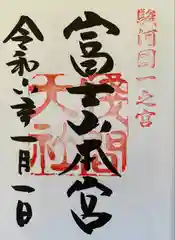 駿河國一之宮
富士山本宮
浅間大社
令和六年一月一日